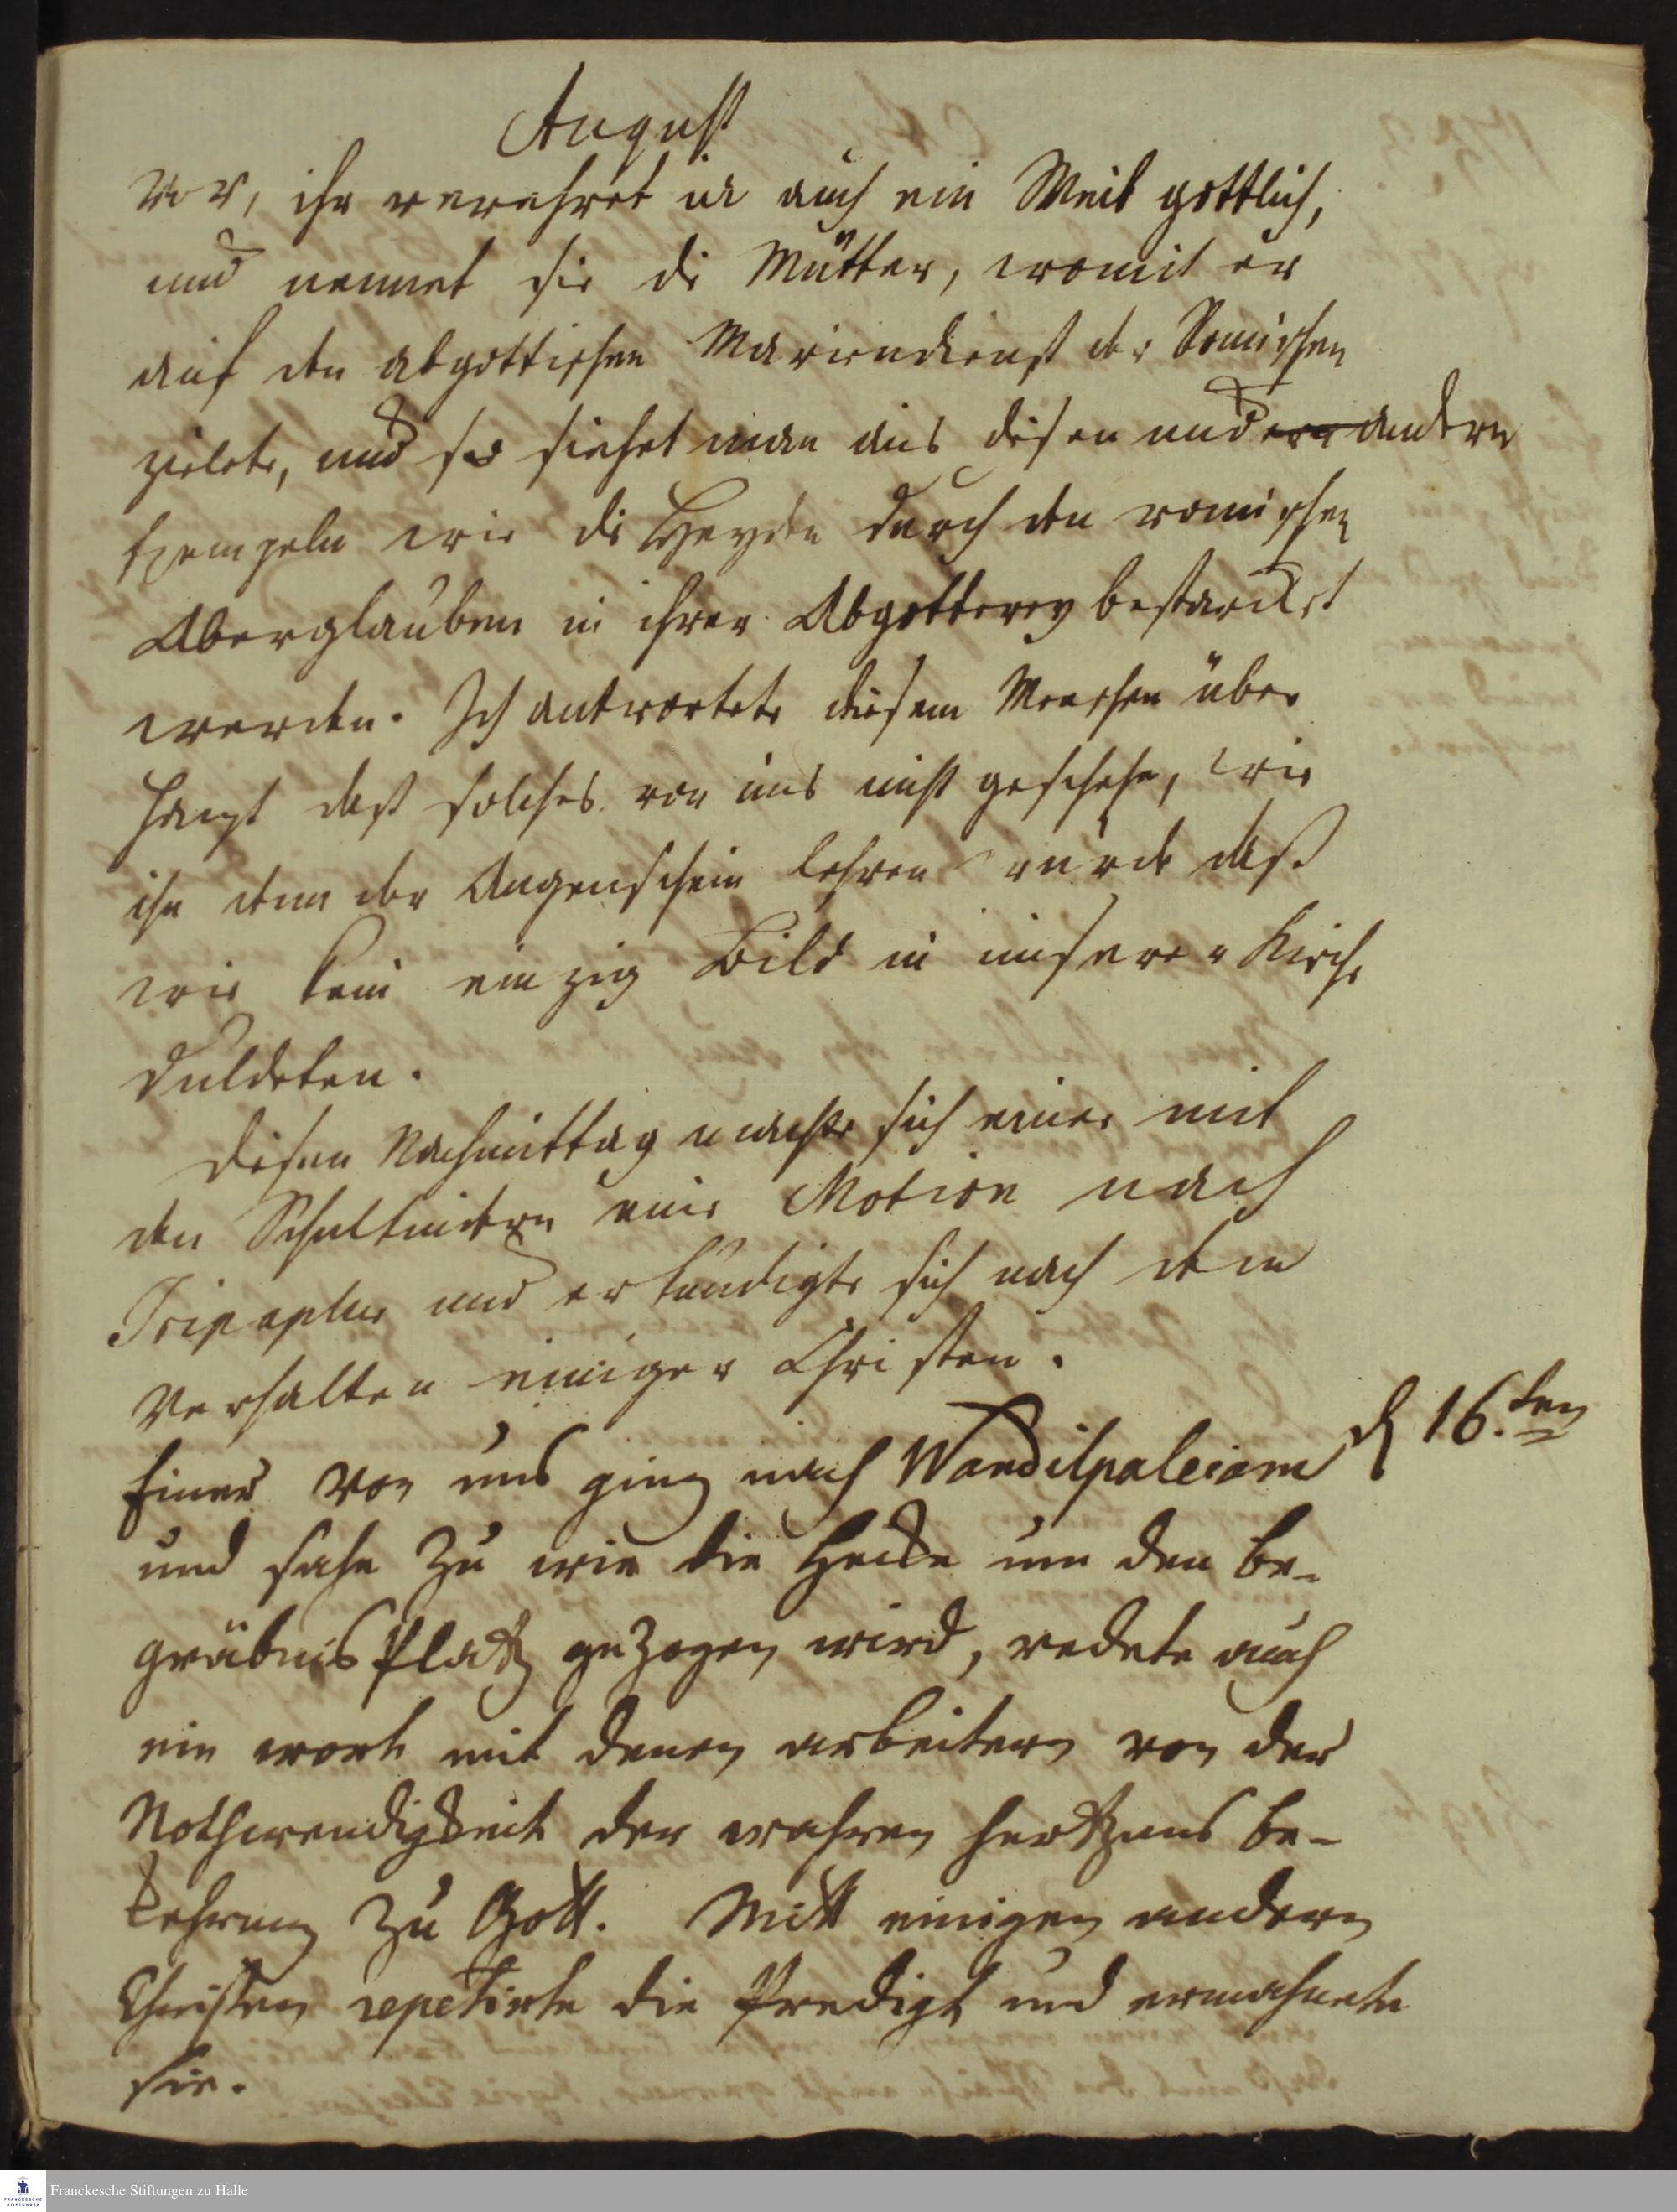 August
vor, ihr verehret ia auch ein Weib gottlich,
und nennet sie di Mütter, womit er
auf den abgottischen Mariendienst der Romischen
zielete, und so siehet man aus disen und andern
Exempeln wie di Heyden durch den romischen
Aberglauben in ihrer Abgotterey bestarcket
werden. Ich antwortete diesem Menschen über
haupt daß solches von uns nicht geschehe, wie
ihn denn der Augenschein lehren würde daß
wir kein einzig Bild in unserer Kirche
duldeten.
Disen Nachmittag machte sich einer mit
den Schulkindern eine Motion nach
und erkundigte sich nach dem
Verhalten einiger Christen.
d 16.ten
Einer von uns ging nach Wandilpaleiam
und sahe zu wie die Hecke um den be-
gräbnis Platz gezogen wird, redete auch
ein wort mit denen arbeitern von der
Nothwendigkeit der wahren hertzens be-
kehrung zu Gott. Mitt einigen andern
Christen repetirte die Predigt und ermahnete
sie.
Franckesche Stiftungen zu Halle
FRANCKESCHE
STIFTUNGEN